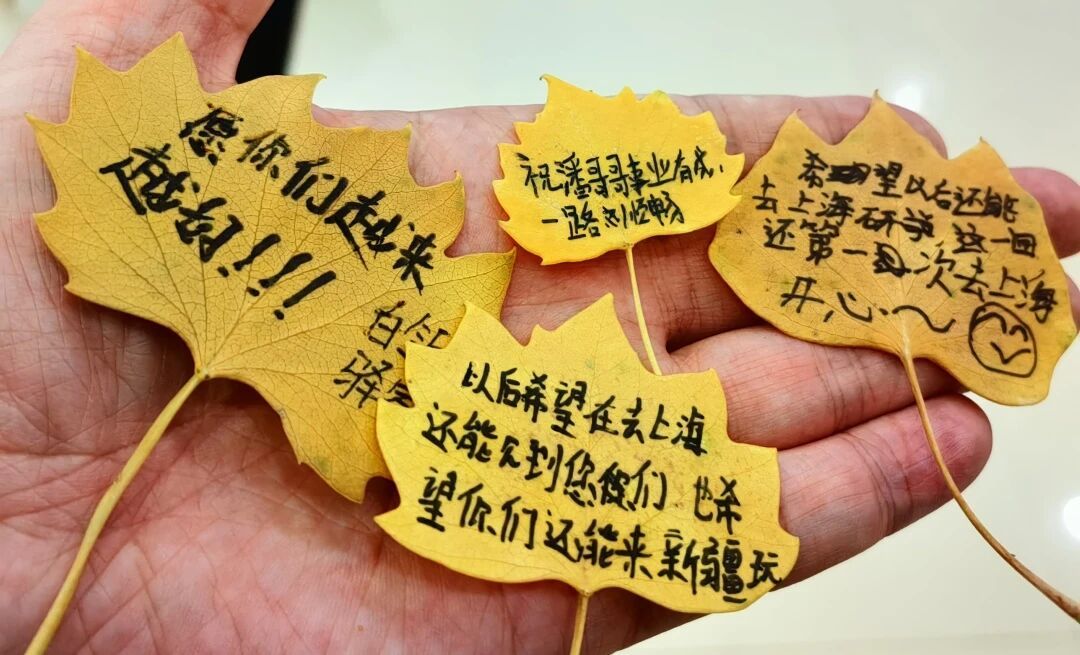 愿你们越来
越好!!!!
白
驿
祝潘哥哥事业有成,
一路顺畅
希望以后还能
去上海研学 这一回
还第一次去上海
开心~
以后希望在去上海
还能见到您你们 也希
望你们还能来新疆玩